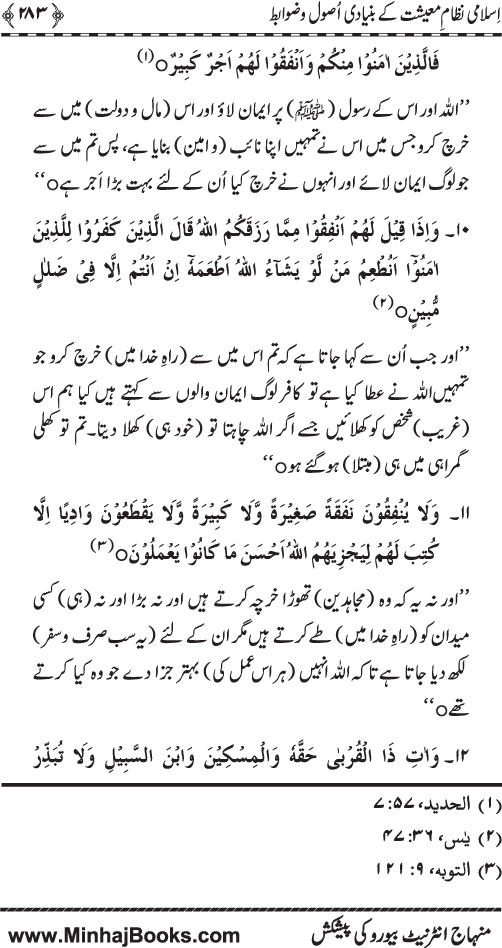 اِسلامی نظامِ معیشت کے بنیادی اُصول وضوابط ﴿۲۸۳﴾
فَالَّذِیْنَ اٰمَنُوْا مِنْکُمْ وَاَنْفَقُوْا لَهُمْ اَجْرٌ کَبِیْرٌ۝ (۱)
’’اللہ اور اس کے رسول (ﷺ) پر ایمان لاؤ اور اس (مال و دولت) میں سے
خرچ کرو جس میں اس نے تمہیں اپنا نائب (و امین) بنایا ہے، پس تم میں سے
جو لوگ ایمان لائے اور انہوں نے خرچ کیا اُن کے لئے بہت بڑا اَجر ہے۝‘‘
۱۰۔ وَاِذَا قِیْلَ لَهُمْ اَنْفِقُوْا مِمَّا رَزَقَکُمُ اللهُ قَالَ الَّذِیْنَ کَفَرُوْا لِلَّذِیْنَ
اٰمَنُوْٓا اَنُطْعِمُ مَنْ لَّوْ یَشَآءُ اللهُ اَطْعَمَهٗٓ اِنْ اَنْتُمْ اِلَّا فِیْ ضَلٰلٍ
مُّبِیْنٍ۝ (۲)
’’اور جب اُن سے کہا جاتا ہے کہ تم اس میں سے (راہِ خدا میں) خرچ کرو جو
تمہیں اللہ نے عطا کیا ہے تو کافر لوگ ایمان والوں سے کہتے ہیں کیا ہم اس
(غریب) شخص کو کھلائیں جسے اگر اللہ چاہتا تو (خود ہی) کھلا دیتا۔ تم تو کھلی
گمراہی میں ہی (مبتلا) ہوگئے ہو۝‘‘
۱۱۔ وَلَا یُنْفِقُوْنَ نَفَقَةً صَغِیْرَةً وَّلَا کَبِیْرَةً وَّلَا یَقْطَعُوْنَ وَادِیًا اِلَّا
کُتِبَ لَهُمْ لِیَجْزِیَهُمُ اللهُ اَحْسَنَ مَا کَانُوْا یَعْمَلُوْنَ۝ (۳)
’’اور نہ یہ کہ وہ (مجاہدین) تھوڑا خرچہ کرتے ہیں اور نہ بڑا اور نہ (ہی) کسی
میدان کو (راہِ خدا میں) طے کرتے ہیں مگر ان کے لئے (یہ سب صرف و سفر)
لکھ دیا جاتا ہے تاکہ اللہ انہیں (ہر اس عمل کی) بہتر جزا دے جو وہ کیا کرتے
تھے۝‘‘
۱۲۔ وَاٰتِ ذَا الْقُرْبٰی حَقَّهٗ وَالْمِسْکِیْنَ وَابْنَ السَّبِیْلِ وَلَا تُبَذِّرْ
(۱) الحدید، ۵۷: ۷
(۲) یٰس، ۳۶: ۴۷
(۳) التوبه، ۹: ۱۲۱
منہاج انٹرنیٹ بیورو کی پیشکش www.MinhajBooks.com